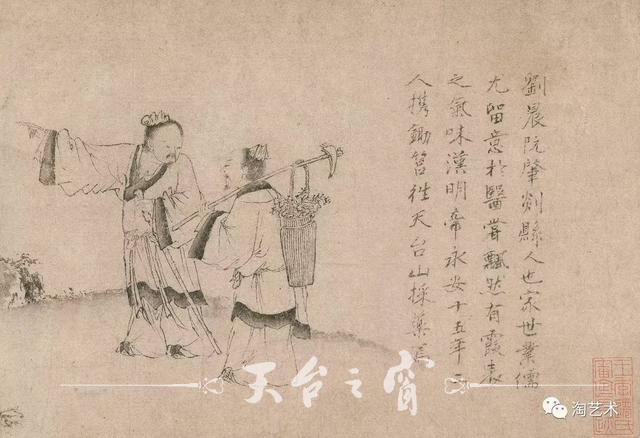 劉晨阮肇剡縣人也家世業儒
尤留意於醫嘗飄然有霞表
之氣味漢明帝永安十五年二
人携鋤筥往天台山採藥焉
天台之窗
淘艺术